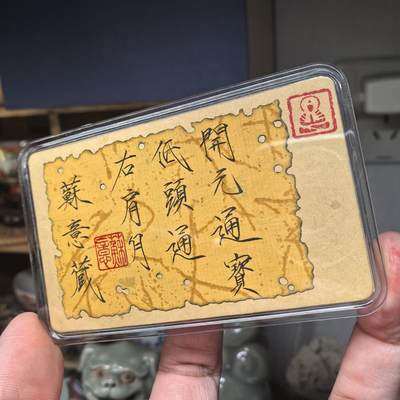 開元通寶
低頭通
右肩月
蘇意藏